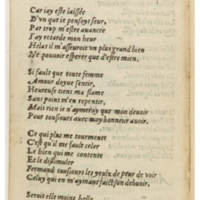 Car i'ay esté laissée
D'vn que ie pensoys seur,
Par trop m'estre auancée
I'ay retardé mon heur
Helas il m'asseuroit vn plus grand bien
Ne pouuoir esperer que d'estre mien.
Si fault que toute femme
Amour doyue sentir,
Heureuse tiens ma flame
Sans point m'en repentir,
Mais rien ie n'aymeray que mon deuoir
Pour tousiours auec moy honneur auoir.
Ce qui plus me tourmente
C'est qu'il me fault celer
Le bien qui me contente
Et le dissimuler
Fermant tousiours les yeulx de peur de voir
Celuy qui en m'aymant faict son debuoir.
Seroit elle moins belle